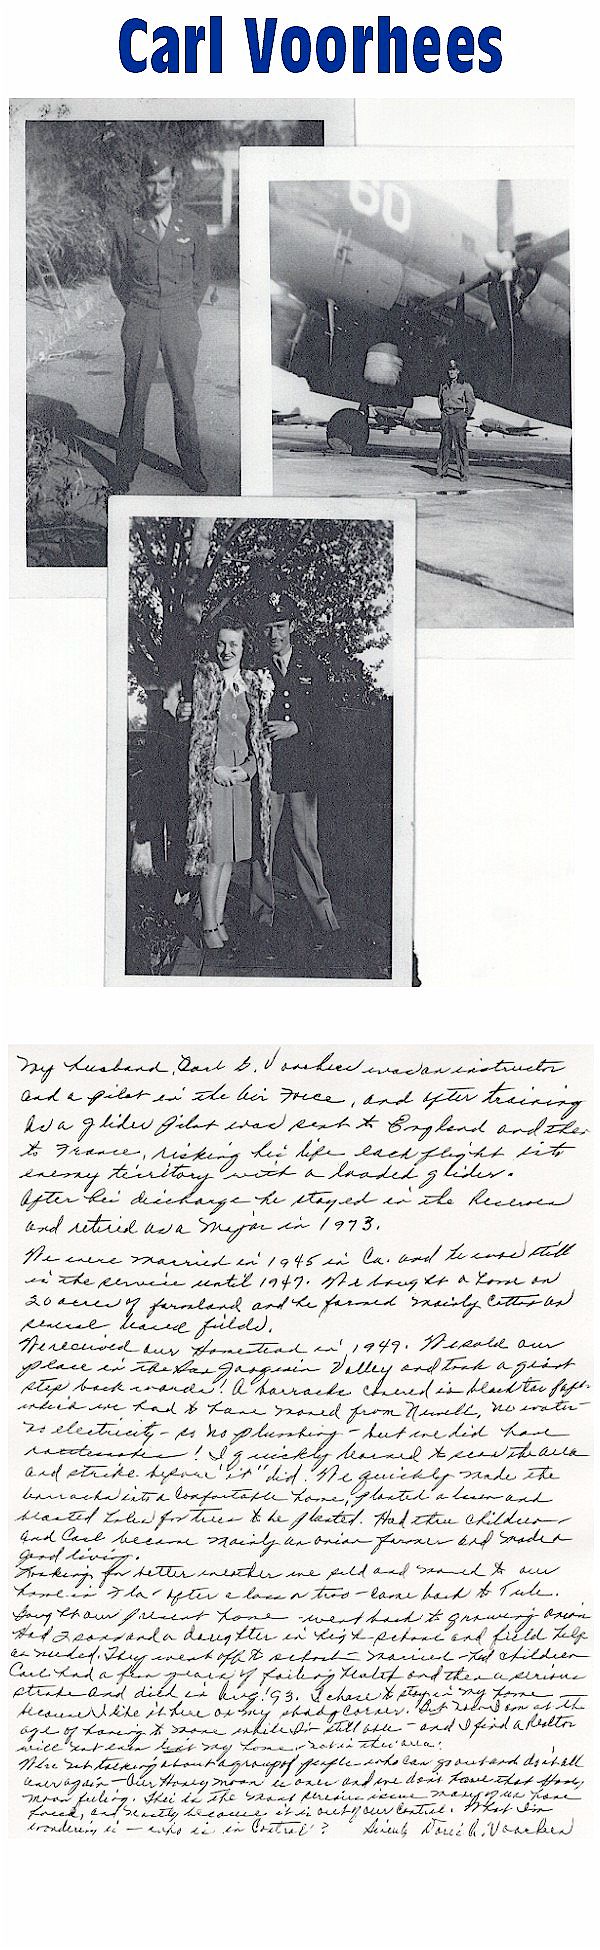 Carl Voorhees
60
My husband, Carl G. Voorhees was an instructor
and a pilot in the Air Force, and after training
as a glider pilot was sent to England and then
to France, risking his life each flight into
enemy territory with a loaded glider.
After his discharge he stayed in the Reserves
and retired as a Major in 1973.
We were married in 1945 in Ca. and he was still
in the service until 1947. We bought a home on
20 acres of farmland and he farmed mainly cotton on
several leased fields.
We received our Homestead in 1949. We sold our
place in the San Joaquin Valley and took a giant
step backwards! A barracks covered in black tar paper
which we had to have moved from Newell, no water-
no electricity - so no plumbing - but we did have
rattlesnakes! I quickly learned to scan the area
and strike before "it" did. We quickly made the
barracks into a comfortable home, planted a lawn and
blasted holes for trees to be planted. Had three children
and Carl became mainly an onion farmer and made a
good living.
Looking for better weather we sold and moved to our
home in Fla - after a loss or two - came back to Tule.
Bought our present home - went back to growing onions
Had 2 sons and a daughter in high school and field help
as needed. They went off to school - married - had children
Carl had a few years of failing health and then a serious
stroke and died in Aug. '93. I chose to stay in my home
because I like it here on my shady corner. But now I am at the
age of having to move while I'm still able - and I find a Realtor
will not even list my home - not in this area!
We're not talking about a group of people who can go out and do it all
over again - Our Honey moon is over and we don't have that
moon feeling. This is the most serious issue many of us have
faced, and mostly because it is out of our control. What I'm
wondering is - who is in Control? Sincerely Doris A. Voorhees